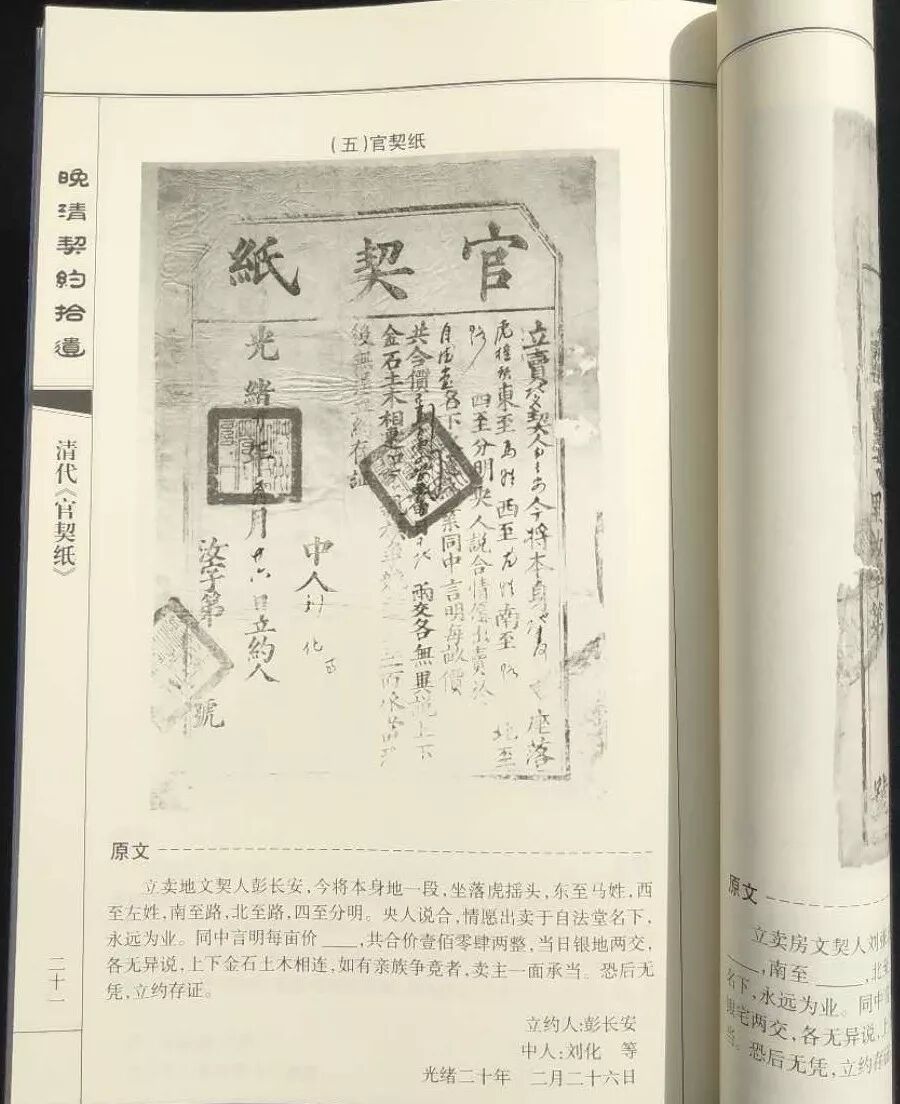 晚清契约拾遗
清代《官契纸》
二十一
(五)官契纸
官契紙
立賣 契人 今将本身 座落
東至馬姓西至左姓南至路 北至
路 四至分明央人説合情愿出賣於
自法堂名下 業同中言明每畝價
共合價 兩交各無異説上下
金石土木相連
後無 存証
中人刘化 百
光緒 年 月廿六日立約人
汝字第 號
原文
立卖地文契人彭长安,今将本身地一段,坐落虎摇头,东至马姓,西
至左姓,南至路,北至路,四至分明。央人说合,情愿出卖于自法堂名下,
永远为业。同中言明每亩价____,共合价壹佰零肆两整,当日银地两交,
各无异说,上下金石土木相连,如有亲族争竞者,卖主一面承当。恐后无
凭,立约存证。
立约人:彭长安
中人:刘化 等
光绪二十年 二月二十六日
原文
立卖房文契人刘
____,南至____,北
名下,永远为业。同中
银宅两交,各无异说,上
当。恐后无凭,立约存证